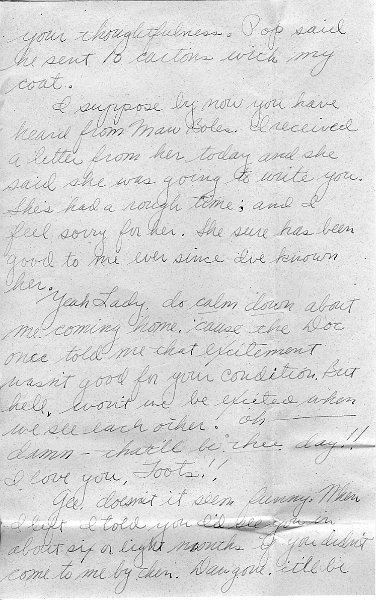 your thoughtfulness. Pop said
he sent 10 cartons with my
coat.
I suppose by now you have
heard from Maw Boles. I received
a letter from her today and she
said she was going to write you.
She's had a rough time; and I
feel sorry for her. She sure has been
good to me ever since I've known
her.
Yeah Lady, do calm down about
me coming home, 'cause the Doc
once told me that excitement
wasn't good for your condition. But
hell, won't we be excited when
we see each other! Oh
damn - that'll be thee day!!
I love you, Toots!!
Gee, doesn't it seem funny. When
I left I told you I'd see you in
about six or eight months if you didn't
come to me by then. Dawgone, it'll be